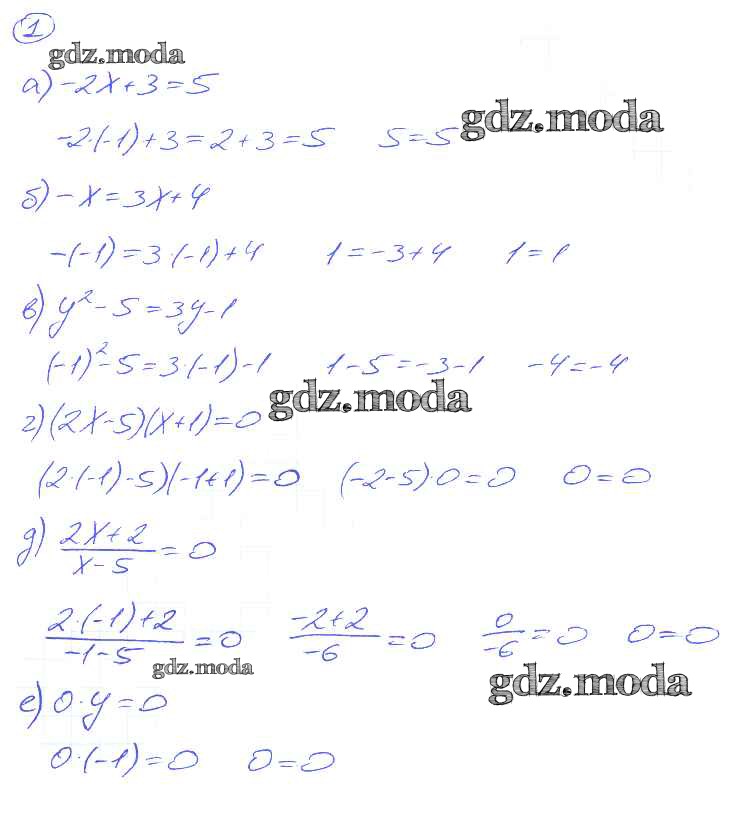 1
gdz.moda
а) -2x+3=5
gdz.moda
-2·(-1)+3=2+3=5   5=5
б) -x=3x+4
-(-1)=3·(-1)+4   1=-3+4   1=1
в) y²-5=3y-1
(-1)²-5=3·(-1)-1   1-5=-3-1   -4=-4
gdz.moda
г) (2x-5)(x+1)=0
(2·(-1)-5)(-1+1)=0   (-2-5)·0=0   0=0
д) (2x+2)/(x-5)=0
(2·(-1)+2)/(-1-5)=0   (-2+2)/(-6)=0   0/(-6)=0   0=0
gdz.moda
gdz.moda
е) 0·y=0
0·(-1)=0   0=0